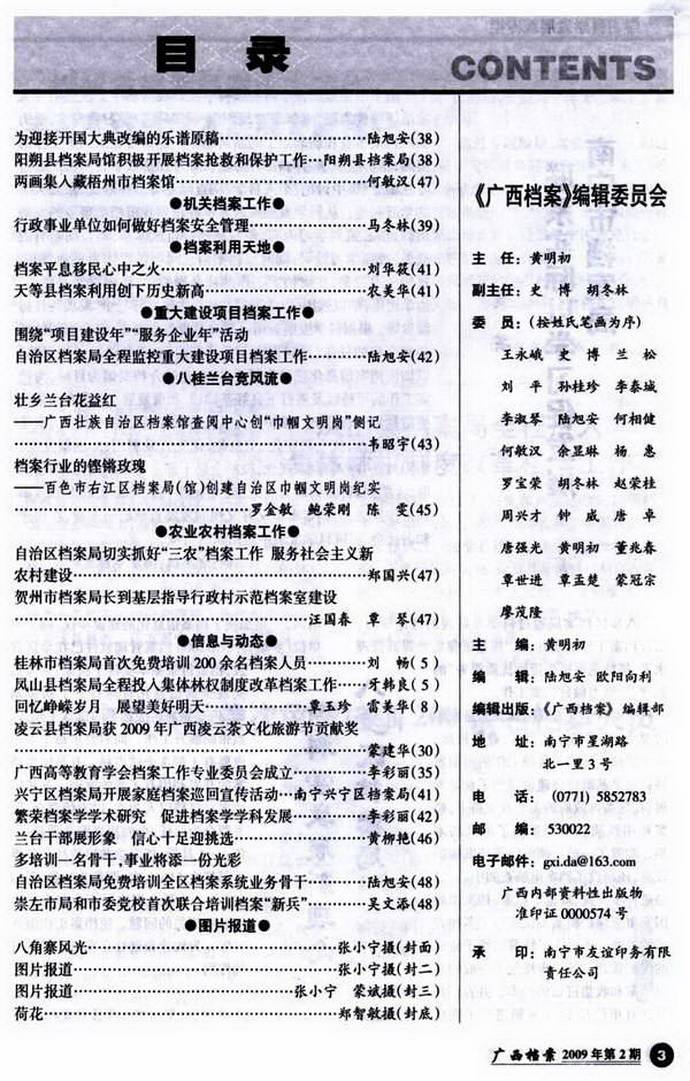 目 录 CONTENTS
为迎接开国大典改编的乐谱原稿………………陆旭安(38)
阳朔县档案局馆积极开展档案抢救和保护工作…阳朔县档案局(38)
两画集入藏梧州市档案馆………………何敏汉(47)
●机关档案工作●
行政事业单位如何做好档案安全管理………………马冬林(39)
●档案利用天地●
档案平息移民心中之火………………刘华筱(41)
天等县档案利用创下历史新高………………农美华(41)
●重大建设项目档案工作●
围绕“项目建设年”“服务企业年”活动
自治区档案局全程监控重大建设项目档案工作………陆旭安(42)
●八桂兰台竞风流●
壮乡兰台花益红
——广西壮族自治区档案馆查阅中心创“巾帼文明岗”侧记
………………韦昭宇(43)
档案行业的铿锵玫瑰
——百色市右江区档案局(馆)创建自治区巾帼文明岗纪实
………………罗金敏 鲍荣刚 陈 雯(45)
●农业农村档案工作●
自治区档案局切实抓好“三农”档案工作 服务社会主义新
农村建设………………郑国兴(47)
贺州市档案局长到基层指导行政村示范档案室建设
………………汪国春 覃 琴(47)
●信息与动态●
桂林市档案局首次免费培训200余名档案人员………刘 畅( 5 )
凤山县档案局全程投入集体林权制度改革档案工作…牙韩良( 5 )
回忆峥嵘岁月 展望美好明天………………覃玉珍 雷美华( 8 )
凌云县档案局获2009年广西凌云茶文化旅游节贡献奖
………………蒙建华(30)
广西高等教育学会档案工作专业委员会成立………李彩丽(35)
兴宁区档案局开展家庭档案巡回宣传活动…南宁兴宁区档案局(41)
繁荣档案学学术研究 促进档案学学科发展………李彩丽(42)
兰台干部展形象 信心十足迎挑选………………黄柳艳(46)
多培训一名骨干,事业将添一份光彩
自治区档案局免费培训全区档案系统业务骨干………陆旭安(48)
崇左市局和市委党校首次联合培训档案“新兵”………吴文添(48)
●图片报道●
八角寨风光………………张小宁摄(封面)
图片报道………………张小宁摄(封二)
图片报道………………张小宁 蒙斌摄(封三)
荷花………………郑智敏摄(封底)
《广西档案》编辑委员会
主 任：黄明初
副主任：史 博 胡冬林
委 员：(按姓氏笔画为序)
王永峨 史 博 兰 松
刘 平 孙桂珍 李泰城
李淑琴 陆旭安 何相健
何敏汉 余显琳 杨 惠
罗宝荣 胡冬林 赵荣桂
周兴才 钟 威 唐 卓
唐强光 黄明初 董兆春
覃世进 覃孟楚 蒙冠宗
廖茂隆
主 编：黄明初
编 辑：陆旭安 欧阳向利
编辑出版：《广西档案》编辑部
地 址：南宁市星湖路
北一里3号
电 话：(0771) 5852783
邮 编：530022
电子邮件：gxi.da@163.com
广西内部资料性出版物
准印证0000574号
承 印：南宁市友谊印务有限
责任公司
广西档案 2009年第2期 3